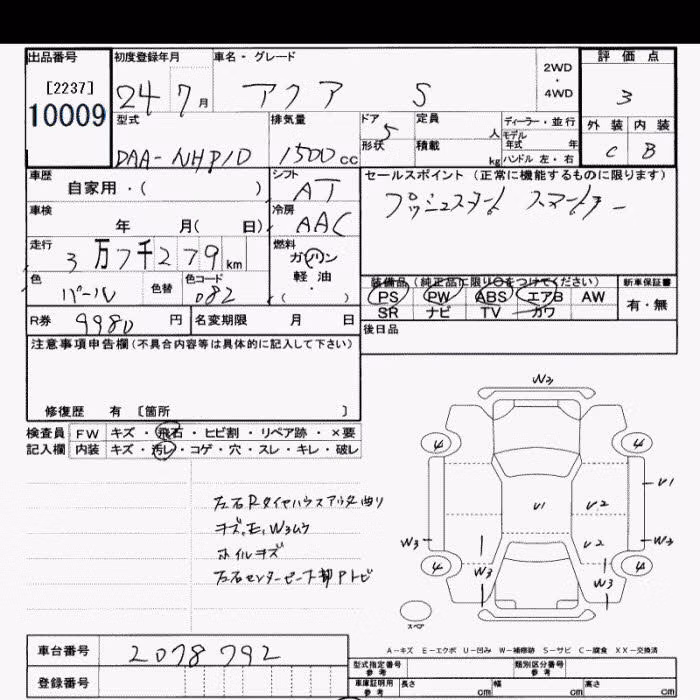 出品番号 初度登録年月 車名・グレード 2WD・4WD 評価点
[2237] 24 7月 アクア S 3
10009
型式 排気量 ドア 定員 ディーラー・並行 外装 内装
5 人 モデル年式 年
DAA-NHP10 1500cc 形状 積載 kg ハンドル 左・右 C B
車歴 シフト セールスポイント(正常に機能するものに限ります)
自家用・( ) AT プッシュスタート スマートキー
車検 冷房
年 月( 日) AAC
走行 燃料
3万7千279km ガソリン
色 色替 色コード 軽・油 装備品(純正品に限り○をつけてください) 新車保証書
パール 082 ・( ) PS PW ABS エアB AW 有・無
R券 9980円 名変期限 月 日 SR ナビ TV カワ
後日品
注意事項申告欄(不具合内容等は具体的に記入して下さい)
修復歴 有 〔箇所 〕
検査員 FW キズ・飛石・ヒビ割・リペア跡・×要
記入欄 内装 キズ・汚レ・コゲ・穴・スレ・キレ・破レ
W3
4 4
U1
U1 U2
左右Rタイヤハウスアウタ曲り
キズ、E、W3ムケ
W3 U2 W3
ホイルキズ
W3 W3
4 4
左右センターピラー部Pトビ
スペア
A-キズ E-エクボ U-凹み W-補修跡 S-サビ C-腐食 XX-交換済
車台番号 2078792
型式指定番号 参考 類別区分番号 参考
登録番号 車庫証明用 参考 長さ cm 幅 cm 高さ cm